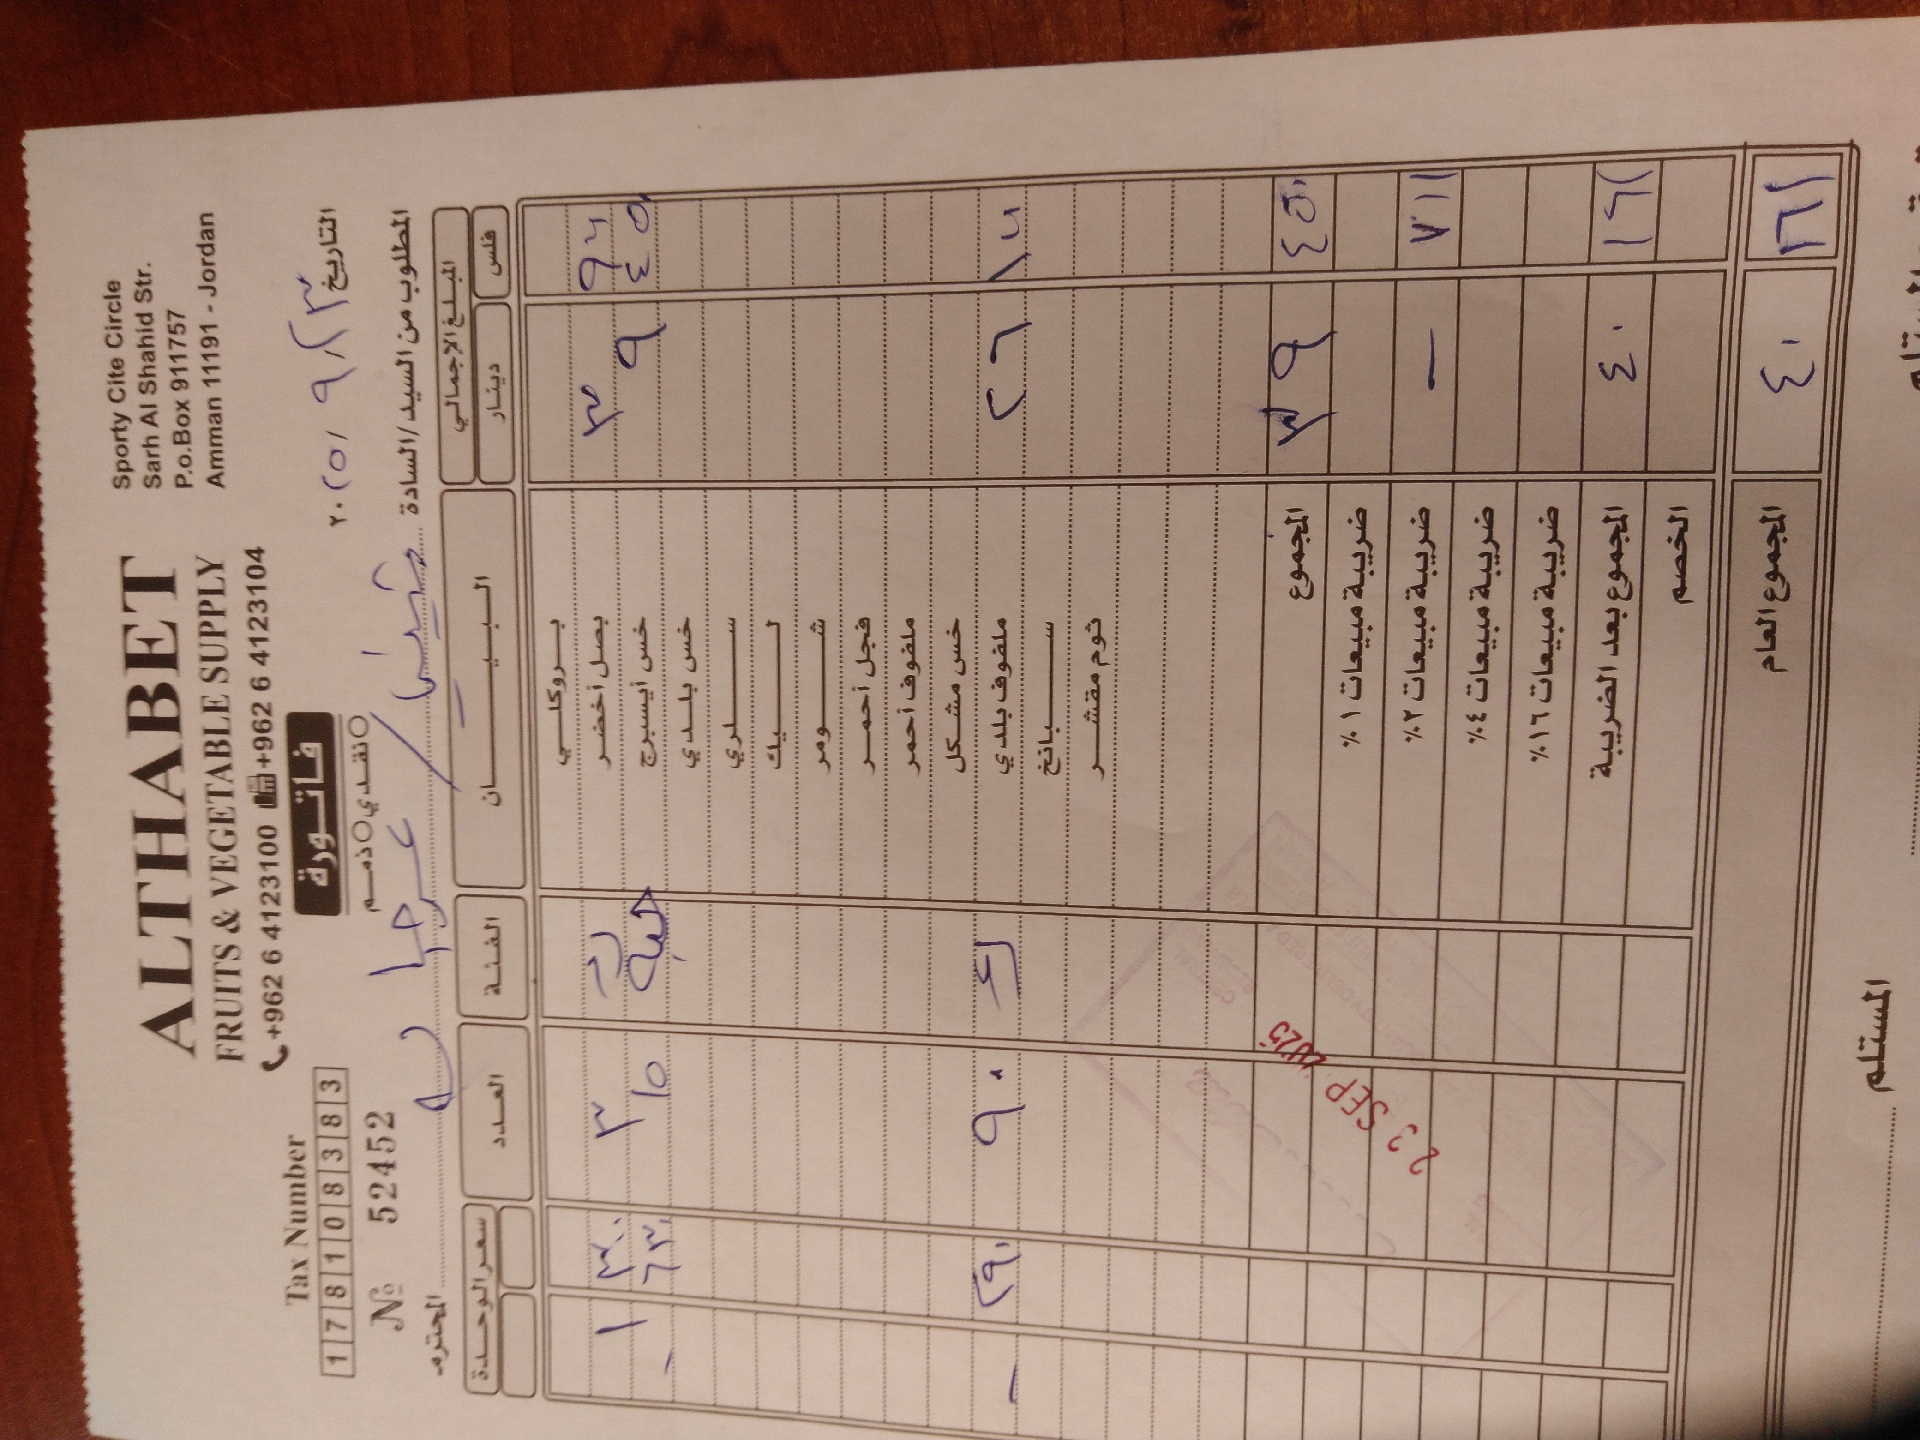 ALTHABET
FRUITS & VEGETABLE SUPPLY
+962 6 4123100 +962 6 4123104
Sporty Cite Circle
Sarh Al Shahid Str.
P.o.Box 911757
Amman 11191 - Jordan
Tax Number
1 7 8 1 0 8 3 8 3
فاتورة
نقدي ذمم
التاريخ ٢٠٢٥/ ٩ /٢٣
№ 52452
المطلوب من السيد/السادة المحترم
المبلغ الاجمالي البيـــــان الفئة العدد سعر الوحدة
فلس دينار
بروكلي
بصل أخضر ٣ ١ ٣٠٠
٤٥٠ ٩ خس أيسبرج حبة ١٥ ٦٣٠
خس بلدي
سلري
ليك
شومر
فجل أحمر
ملفوف أحمر
خس مشكل
٢٦ ملفوف بلدي ٩٠ ٢٩٠
سبانخ
ثوم مقشر
٣٩ المجموع
ضريبة مبيعات ١ %
٧١١ ضريبة مبيعات ٢ %
ضريبة مبيعات ٤ %
ضريبة مبيعات ١٦ %
٤٠ المجموع بعد الضريبة
الخصم
٤٠ المجموع العام
23 SEP 2025
المستلم